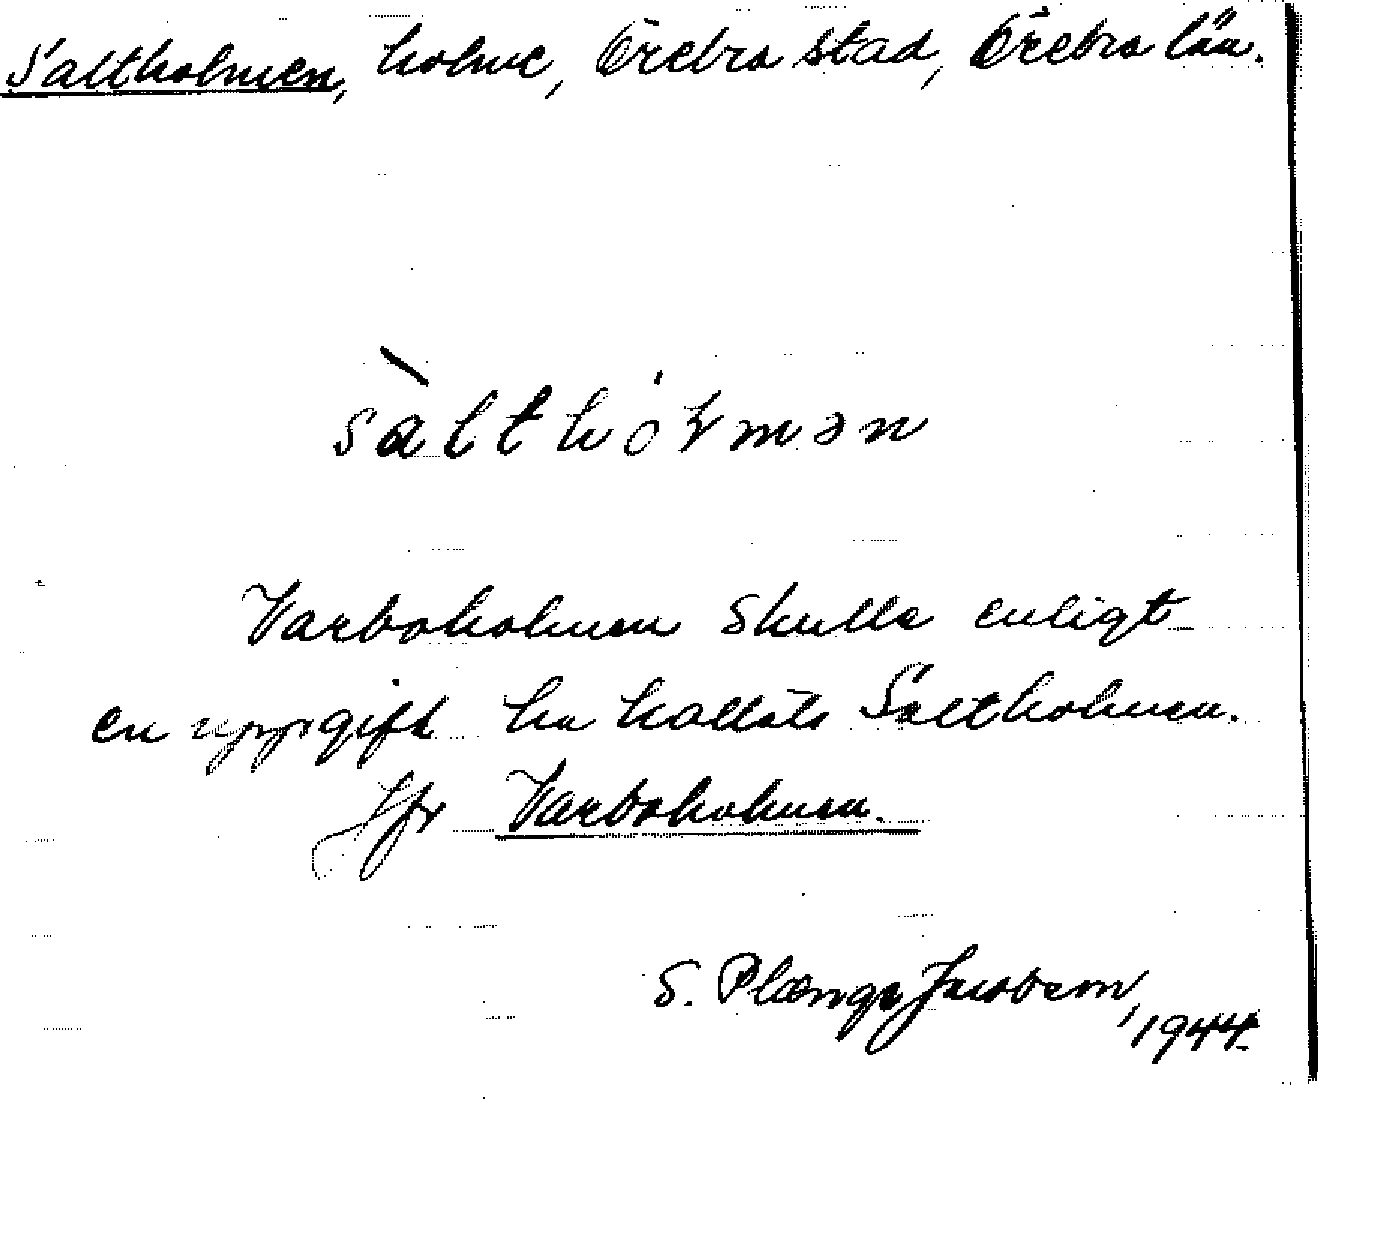 Saltholmen, holme, Örebro stad, Örebro län.
sàlthólmən
Varboholmen skulle enligt
en uppgift ha kallats Saltholmen.
Jfr Varboholmen.
S. Plænge Jacobson,
1944